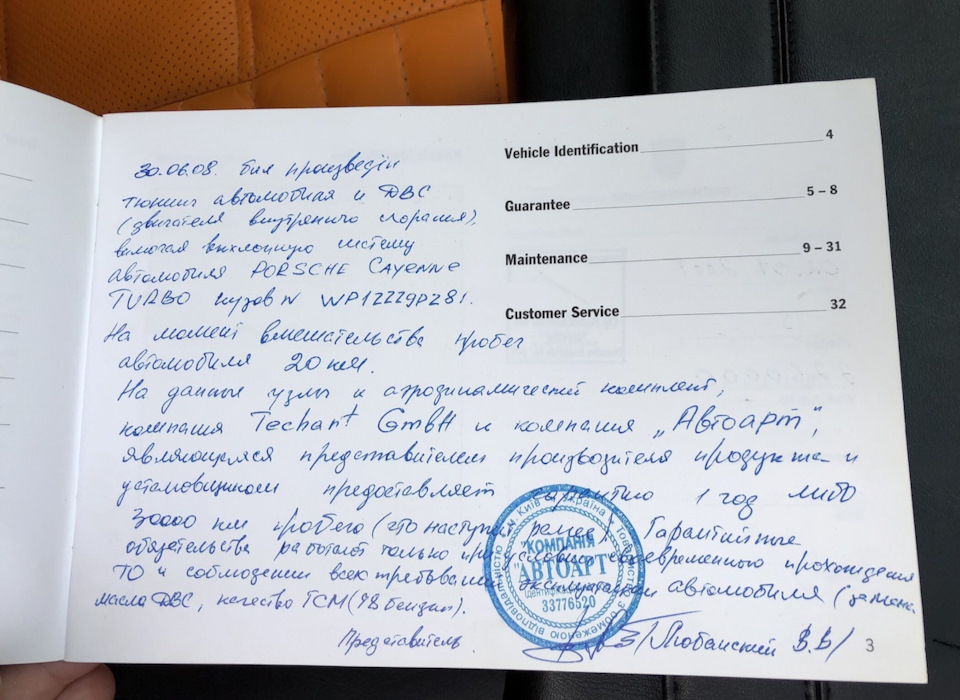 Vehicle Identification 4
Guarantee 5 – 8
Maintenance 9 – 31
Customer Service 32
30.06.08. был произведён
тюнинг автомобиля и ДВС
(двигателя внутреннего сгорания),
включая выхлопную систему
автомобиля PORSCHE CAYENNE
TURBO кузов N WP1ZZZ9PZ81.
На момент вмешательства пробег
автомобиля 20 км.
На данные узлы и аэродинамический комплект,
компания Techart GmbH и компания „Автоарт",
являющаяся представителем производителя продукта и
установщиком предоставляет гарантию 1 год либо
30000 км пробега (что наступит ранее). Гарантийные
обязательства работают только при условии своевременного прохождения
ТО и соблюдении всех требований эксплуатации автомобиля (замена
масла ДВС, качество ГСМ (98 бензин).
Представитель /Любанский В.В/
КОМПАНІЯ
"АВТОАРТ"
33776520
Київ Україна Товариство з обмеженою відповідальністю
3